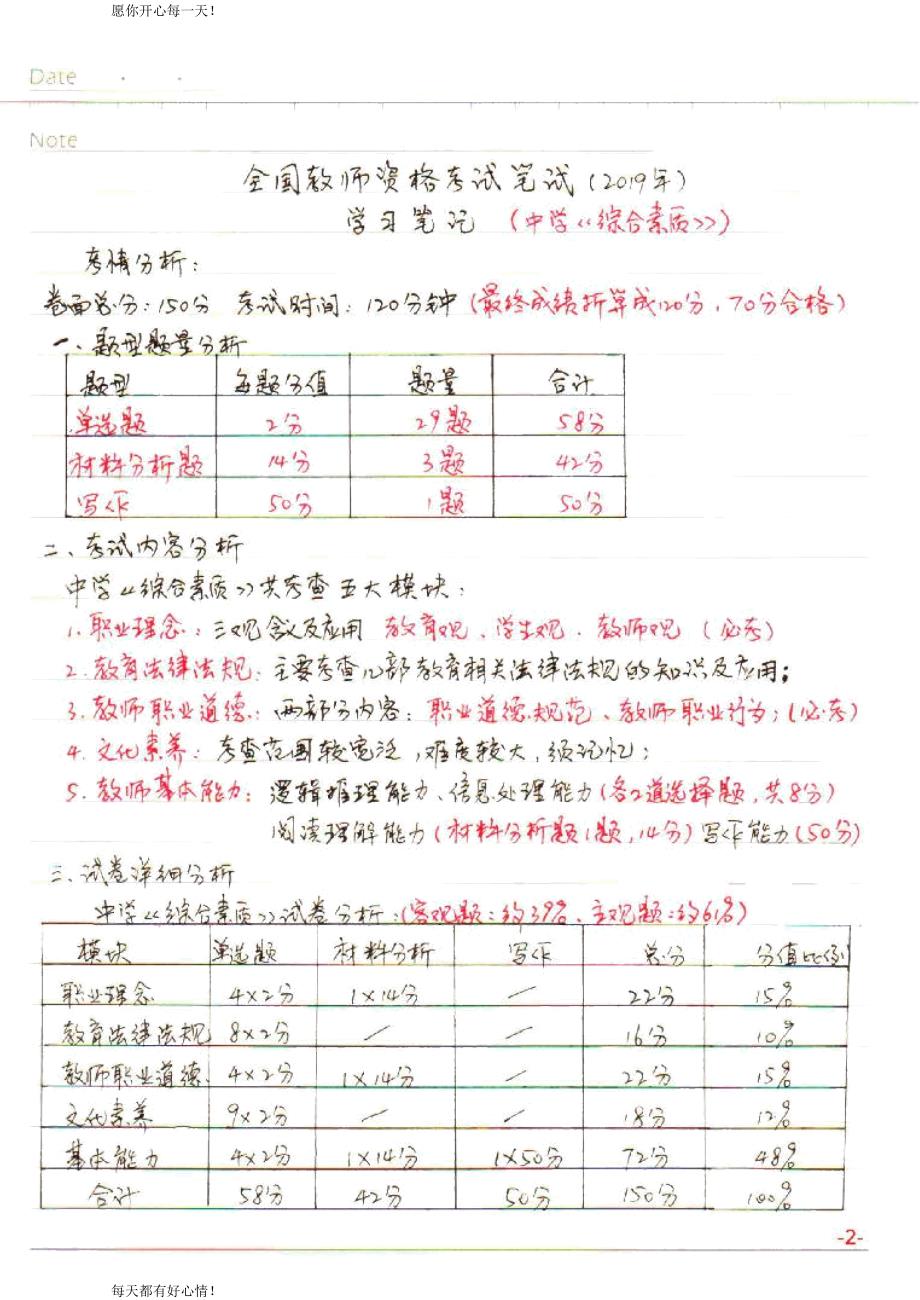 愿你开心每一天！
Date · ·
Note
全国教师资格考试笔试（2019年）
学习笔记 （中学《综合素质》）
考情分析：
卷面总分：150分 考试时间：120分钟（最终成绩折算成120分，70分合格）
一、题型题量分析
题型 每题分值 题量 合计
单选题 2分 29题 58分
材料分析题 14分 3题 42分
写作 50分 1题 50分
二、考试内容分析
中学《综合素质》共考查五大模块：
1.职业理念：三观含义及应用 教育观、学生观、教师观（必考）
2.教育法律法规：主要考查几部教育相关法律法规的知识及应用；
3.教师职业道德：两部分内容：职业道德规范、教师职业行为；（必考）
4.文化素养：考查范围较宽泛，难度较大，须记忆；
5.教师基本能力：逻辑推理能力、信息处理能力（各2道选择题，共8分）
阅读理解能力（材料分析题1题，14分）写作能力（50分）
三、试卷详细分析
中学《综合素质》试卷分析：（客观题：约39%、主观题：约61%）
模块 单选题 材料分析 写作 总分 分值比例
职业理念 4×2分 1×14分 / 22分 15%
教育法律法规 8×2分 / / 16分 10%
教师职业道德 4×2分 1×14分 / 22分 15%
文化素养 9×2分 / / 18分 12%
基本能力 4×2分 1×14分 1×50分 72分 48%
合计 58分 42分 50分 150分 100%
-2-
每天都有好心情！